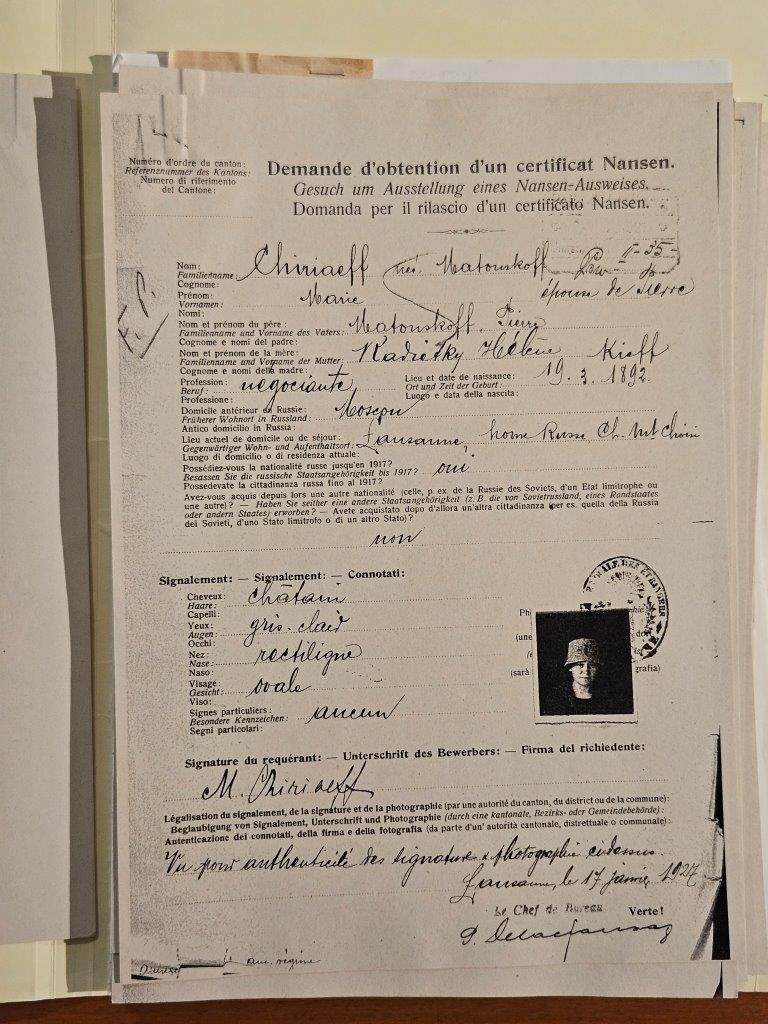 Numéro d'ordre du canton:
Referenznummer des Kantons:
Numero di riferimento
del Cantone:
Demande d'obtention d'un certificat Nansen.
Gesuch um Ausstellung eines Nansen-Ausweises.
Domanda per il rilascio d'un certificato Nansen.
Nom: Chiriaeff née Matouskoff II-35-
Familienname:
Cognome:
épouse de Pierre
Prénom: Marie
Vornamen:
Nomi:
Nom et prénom du père: Matouskoff, Pierre
Familienname und Vorname des Vaters:
Cognome e nomi del padre:
Nom et prénom de la mère: Radietzky Hélène Kieff
Familienname und Vorname der Mutter:
Cognome e nomi della madre:
Profession: négociante
Beruf:
Professione:
Lieu et date de naissance: 19. 3. 1892.
Ort und Zeit der Geburt:
Luogo e data della nascita:
Domicile antérieur en Russie: Moscou
Früherer Wohnort in Russland:
Antico domicilio in Russia:
Lieu actuel de domicile ou de séjour: Lausanne, home Russe Ch. Mt Choisi
Gegenwärtiger Wohn- und Aufenthaltsort:
Luogo di domicilio o di residenza attuale:
Possédiez-vous la nationalité russe jusqu'en 1917? oui
Besassen Sie die russische Staatsangehörigkeit bis 1917?
Possedevate la cittadinanza russa fino al 1917?
Avez-vous acquis depuis lors une autre nationalité (celle, p. ex. de la Russie des Soviets, d'un Etat limitrophe ou
une autre)? — Haben Sie seither eine andere Staatsangehörigkeit (z. B. die von Sovietrussland, eines Randstaates
oder andern Staates) erworben? — Avete acquistato dopo d'allora un'altra cittadinanza (per es. quella della Russia
dei Sovieti, d'uno Stato limitrofo o di un altro Stato)?
non
Signalement: — Signalement: — Connotati:
Cheveux: Châtain
Haare:
Capelli:
Yeux: gris-clair
Augen:
Occhi:
Nez: rectiligne
Nase:
Naso:
Visage: ovale
Gesicht:
Viso:
Signes particuliers: aucun
Besondere Kennzeichen:
Segni particolari:
Signature du requérant: — Unterschrift des Bewerbers: — Firma del richiedente:
M. Chiriaeff
Légalisation du signalement, de la signature et de la photographie (par une autorité du canton, du district ou de la commune):
Beglaubigung von Signalement, Unterschrift und Photographie (durch eine kantonale, Bezirks- oder Gemeindebehörde):
Autenticazione dei connotati, della firma e della fotografia (da parte d'un' autorità cantonale, distrettuale o comunale):
Vu pour authenticité des signature & photographie cidessus.
Lausanne, le 17 janvier 1927
Le Chef de Bureau Verte!